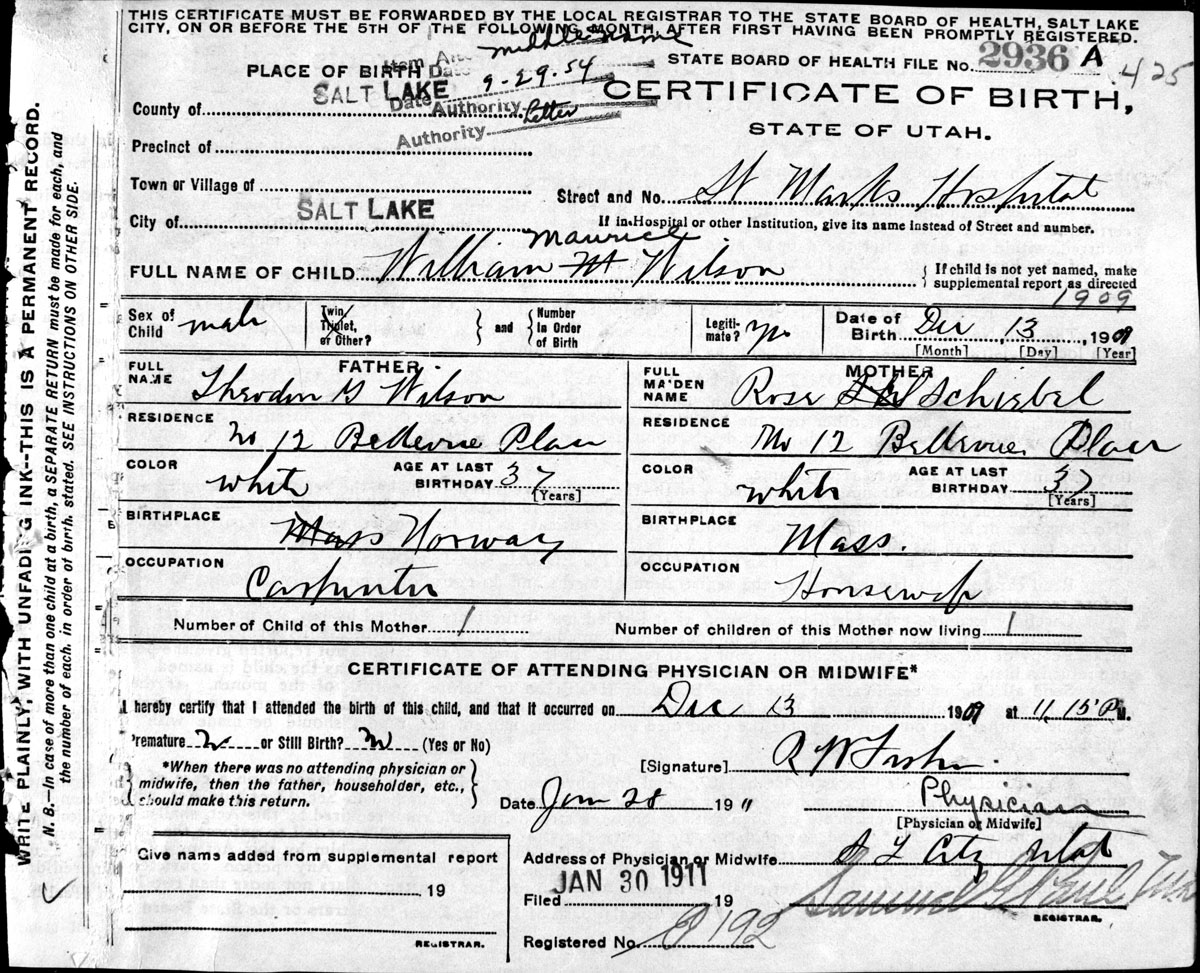 THIS CERTIFICATE MUST BE FORWARDED BY THE LOCAL REGISTRAR TO THE STATE BOARD OF HEALTH, SALT LAKE
CITY, ON OR BEFORE THE 5TH OF THE FOLLOWING MONTH, AFTER FIRST HAVING BEEN PROMPTLY REGISTERED.
middle name
STATE BOARD OF HEALTH FILE No. 2936 A
425
PLACE OF BIRTH
Date 9-29-54
SALT LAKE
CERTIFICATE OF BIRTH,
County of
Date Authority Letter
STATE OF UTAH.
Authority
Precinct of
Town or Village of
Street and No. St Marks Hospital
City of SALT LAKE
If in Hospital or other Institution, give its name instead of Street and number.
Maurice
FULL NAME OF CHILD William M Wilson
If child is not yet named, make
supplemental report as directed
1909
Sex of Child male
Twin Triplet, or Other?
and
Number In Order of Birth
Legiti-mate? yes
Date of Birth Dec 13, 1909
[Month] [Day] [Year]
FATHER
MOTHER
FULL NAME Theodor G Wilson
FULL MAIDEN NAME Rose Schiebel
RESIDENCE
No 12 Bellevue Place
RESIDENCE
No 12 Bellevue Place
COLOR white
AGE AT LAST BIRTHDAY 37
[Years]
COLOR white
AGE AT LAST BIRTHDAY 37
[Years]
BIRTHPLACE
Mass Norway
BIRTHPLACE
Mass.
OCCUPATION
Carpenter
OCCUPATION
Housewife
Number of Child of this Mother 1
Number of children of this Mother now living 1
CERTIFICATE OF ATTENDING PHYSICIAN OR MIDWIFE*
I hereby certify that I attended the birth of this child, and that it occurred on Dec 13 1909 at 11.15 P M.
Premature No or Still Birth? No (Yes or No)
*When there was no attending physician or
midwife, then the father, householder, etc.,
should make this return.
[Signature] R W
Date Jan 28 1911
Physician
[Physician or Midwife]
Give name added from supplemental report
19
REGISTRAR.
Address of Physician or Midwife S L City Utah
JAN 30 1911
Filed 19
Samuel G Paul
REGISTRAR.
Registered No. 192
WRITE PLAINLY, WITH UNFADING INK--THIS IS A PERMANENT RECORD.
N. B.—In case of more than one child at a birth, a SEPARATE RETURN must be made for each, and
the number of each, in order of birth, stated. SEE INSTRUCTIONS ON OTHER SIDE.